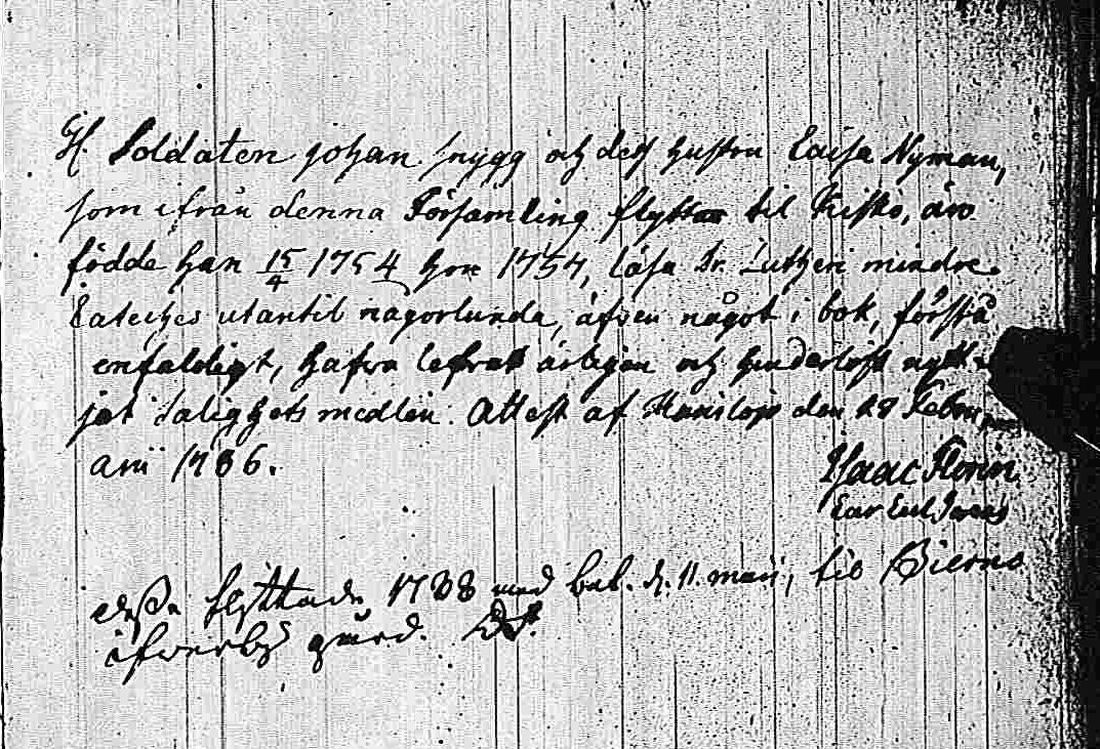 Gl. Soldaten Johan Snygg och dess hustru Caisa Nyman,
som ifrån denna Församling flytta til Kisko, äro
födde han 15/4 1754 hon 1757, läsa Dr. Lutheri mindre
Cateches utantil någorlunda, äfven något i bok, förstå
enfaldigt, hafva lefvat ärligen och hinderlöst nytt
jat Salighets medlen. Attest af den 28 Febru
ani 1786.
Isaac Florin
desse flyttade 1788 med bet. d. 11. maii, til Bierno
gård.